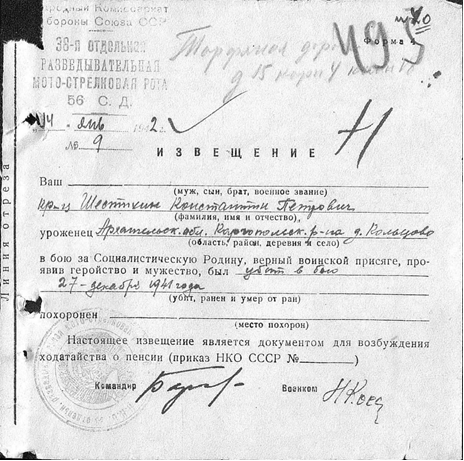 Народный Комиссариат
обороны Союза ССР
38-я ОТДЕЛЬНАЯ
РАЗВЕДЫВАТЕЛЬНАЯ
МОТО-СТРЕЛКОВАЯ РОТА
56 С. Д.
14 янв 1942
№ 9
Торфяная
д 15 корп 4
Форма 4
495
Линия отреза
ИЗВЕЩЕНИЕ
Ваш
(муж, сын, брат, военное звание)
кр-ец Шестткин Константин Петрович
(фамилия, имя и отчество),
уроженец Архангельск. обл. Каргопольск. р-на д. Кольцово
(область, район, деревня и село)
в бою за Социалистическую Родину, верный воинской присяге, про-
явив геройство и мужество, был убит в бою
27 декабря 1941 года
(убит, ранен и умер от ран)
похоронен
(место похорон)
Настоящее извещение является документом для возбуждения
ходатайства о пенсии (приказ НКО СССР № )
Командир Военком